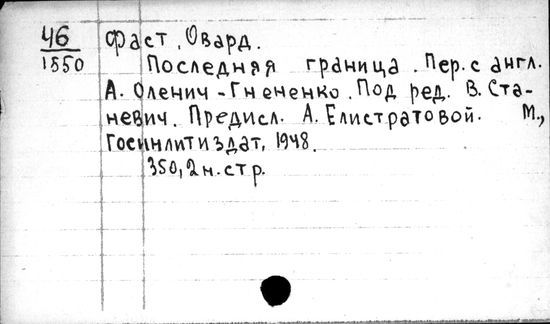 46 Фаст, Овард.
1550 Последняя граница. Пер. с англ.
А. Оленич-Гнененко. Под ред. В. Ста-
невич. Предисл. А. Елистратовой. М.,
Госинлитиздат, 1948.
350, 2 н. стр.